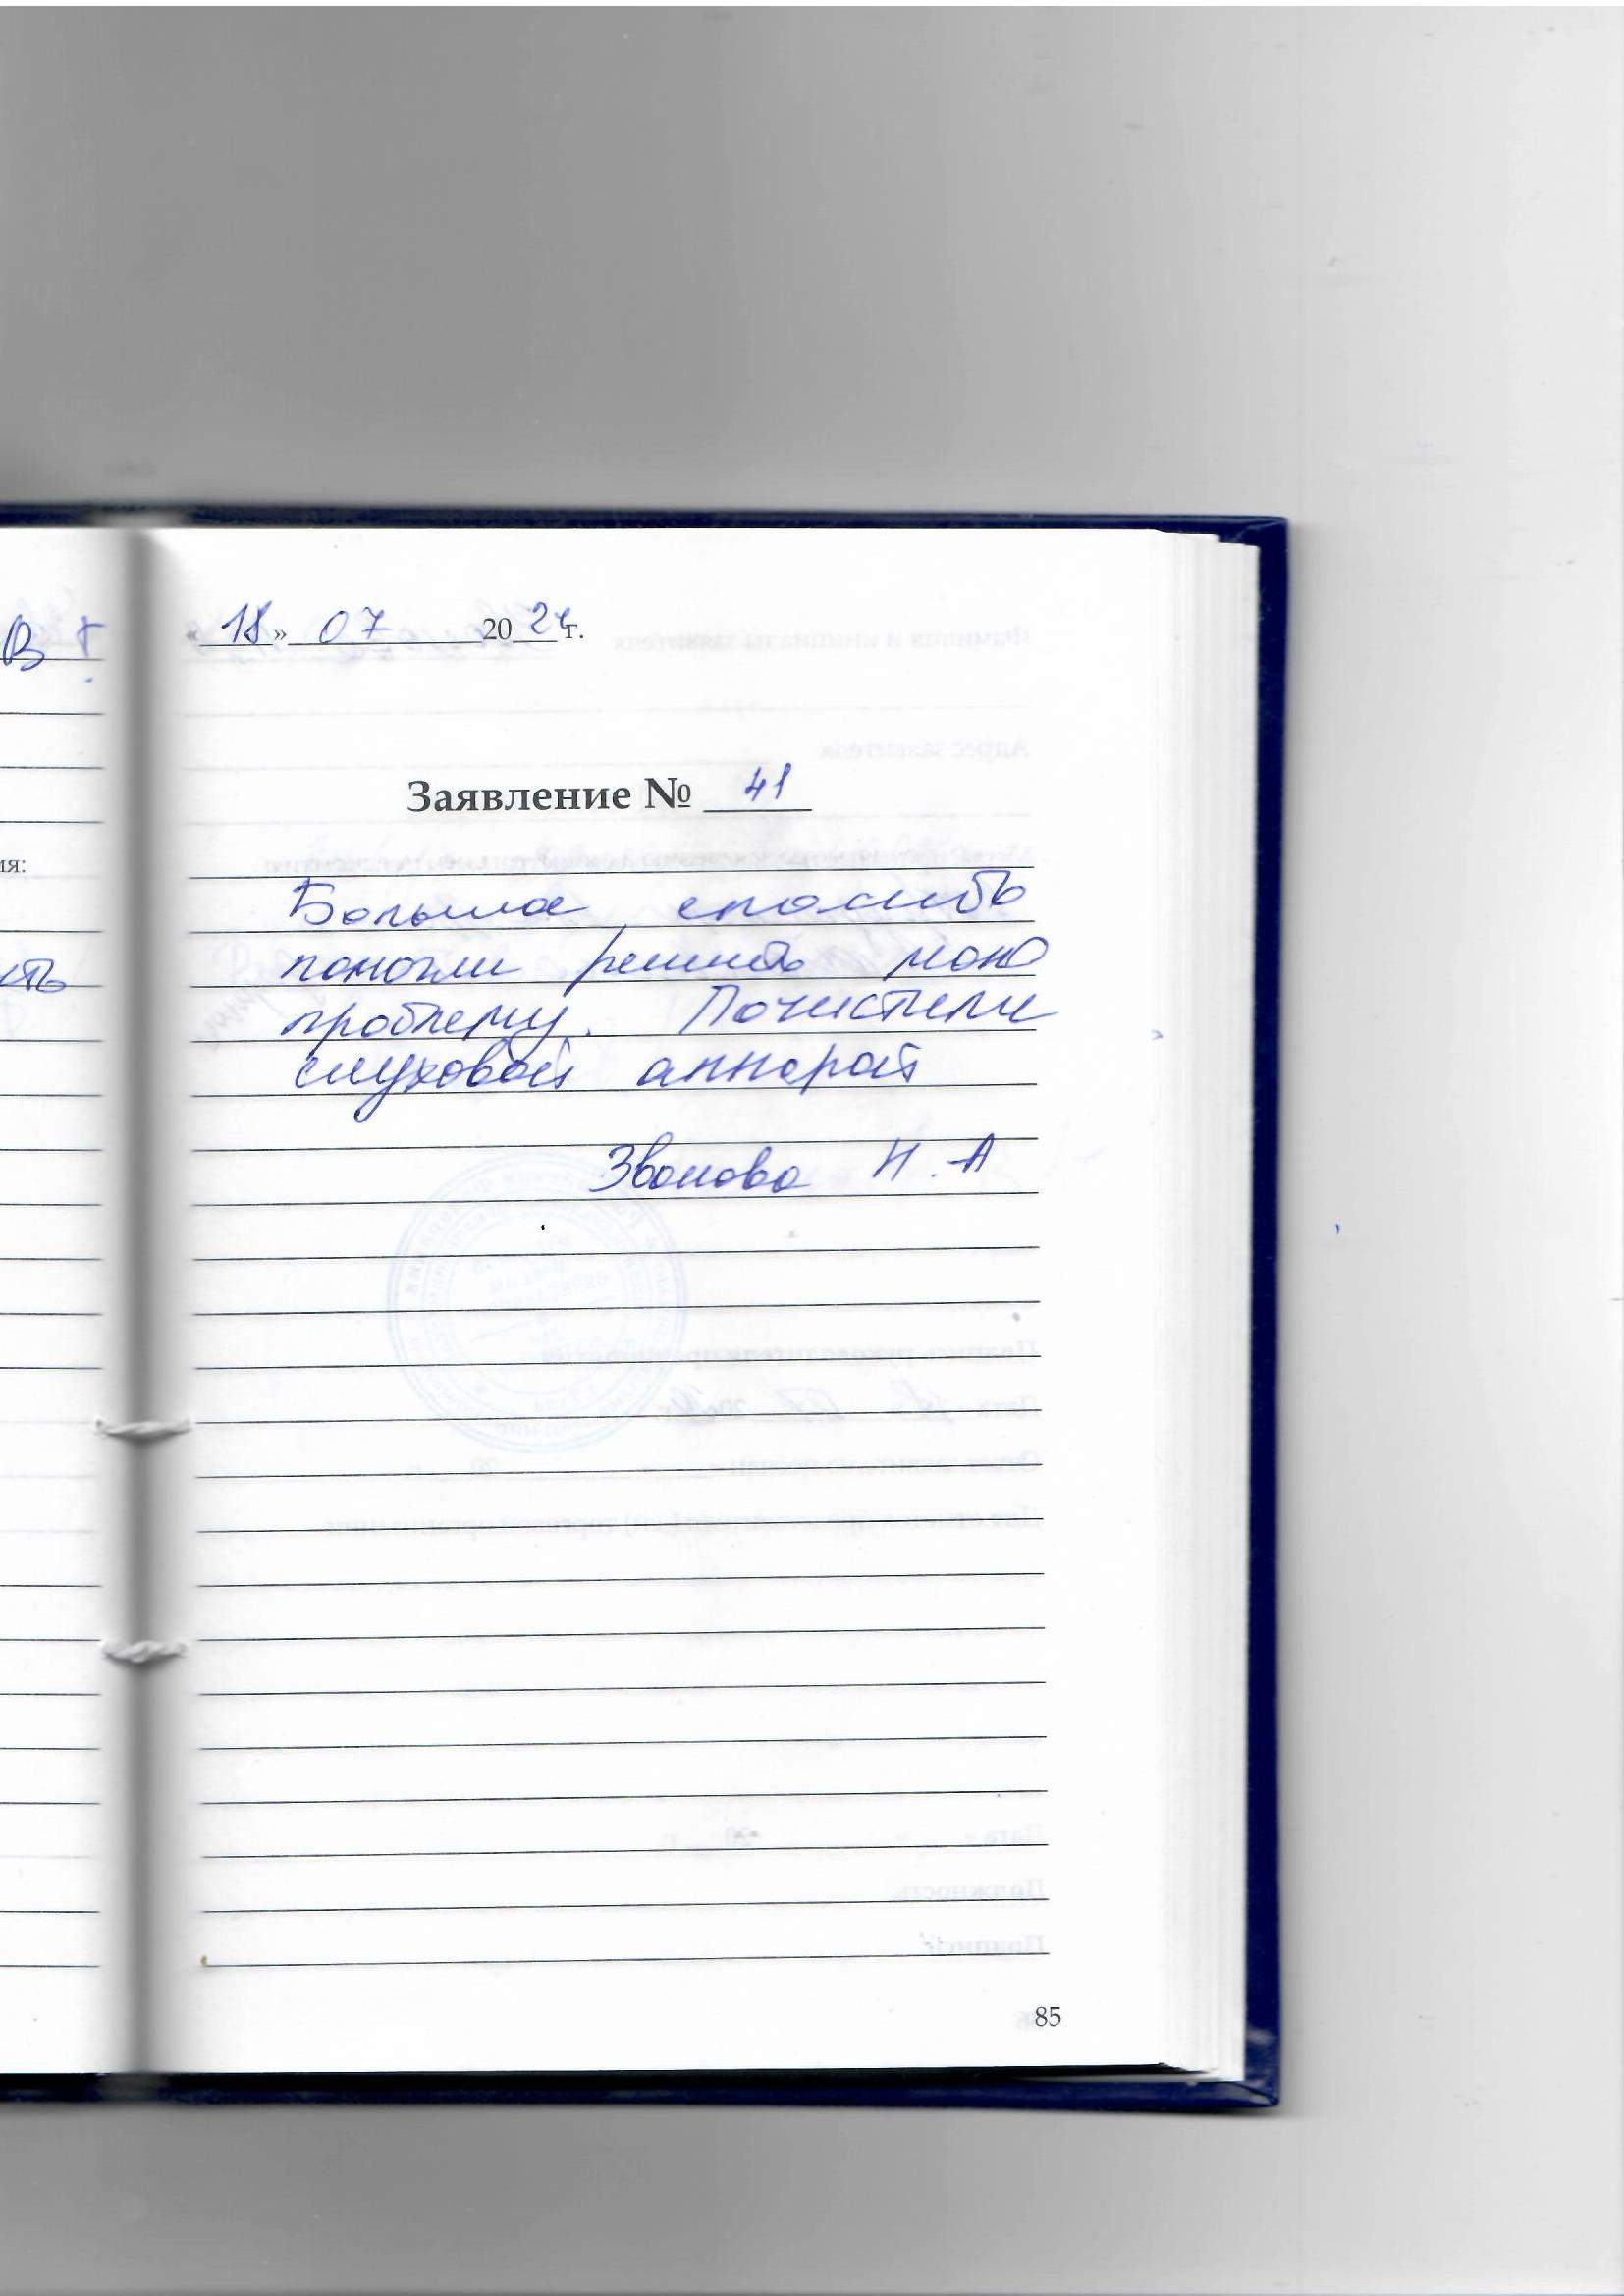 « 18 » 07 2024 г.
Заявление № 41
Большое спасибо
помогли решить мою
проблему. Почистили
слуховой аппарат
Звонова Н.А
ия:
85